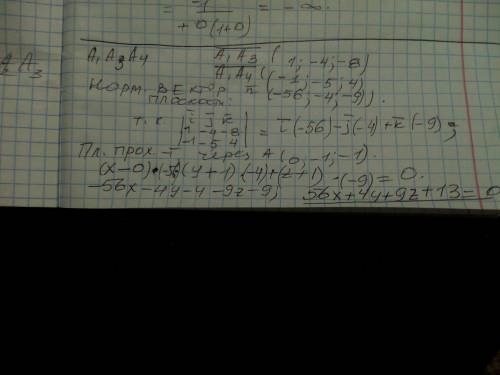 = -1 / +0(1+0) = -∞.
A₂A₃
A₁A₃A₄ A₁A₃ (1; -4; -8)
A₁A₄ (-1; -5; 4)
Норм. вектор n (-56; -4; -9).
плоскости:
т.к |i j k; 1 -4 -8; -1 -5 4| = i(-56) - j(-4) + k(-9);
Пл. прох-т через A (0, -1; -1).
(x-0)·(-56)(y+1)·(-4)+(z+1)·(-9) = 0.
-56x-4y-4-9z-9; 56x+4y+9z+13=0